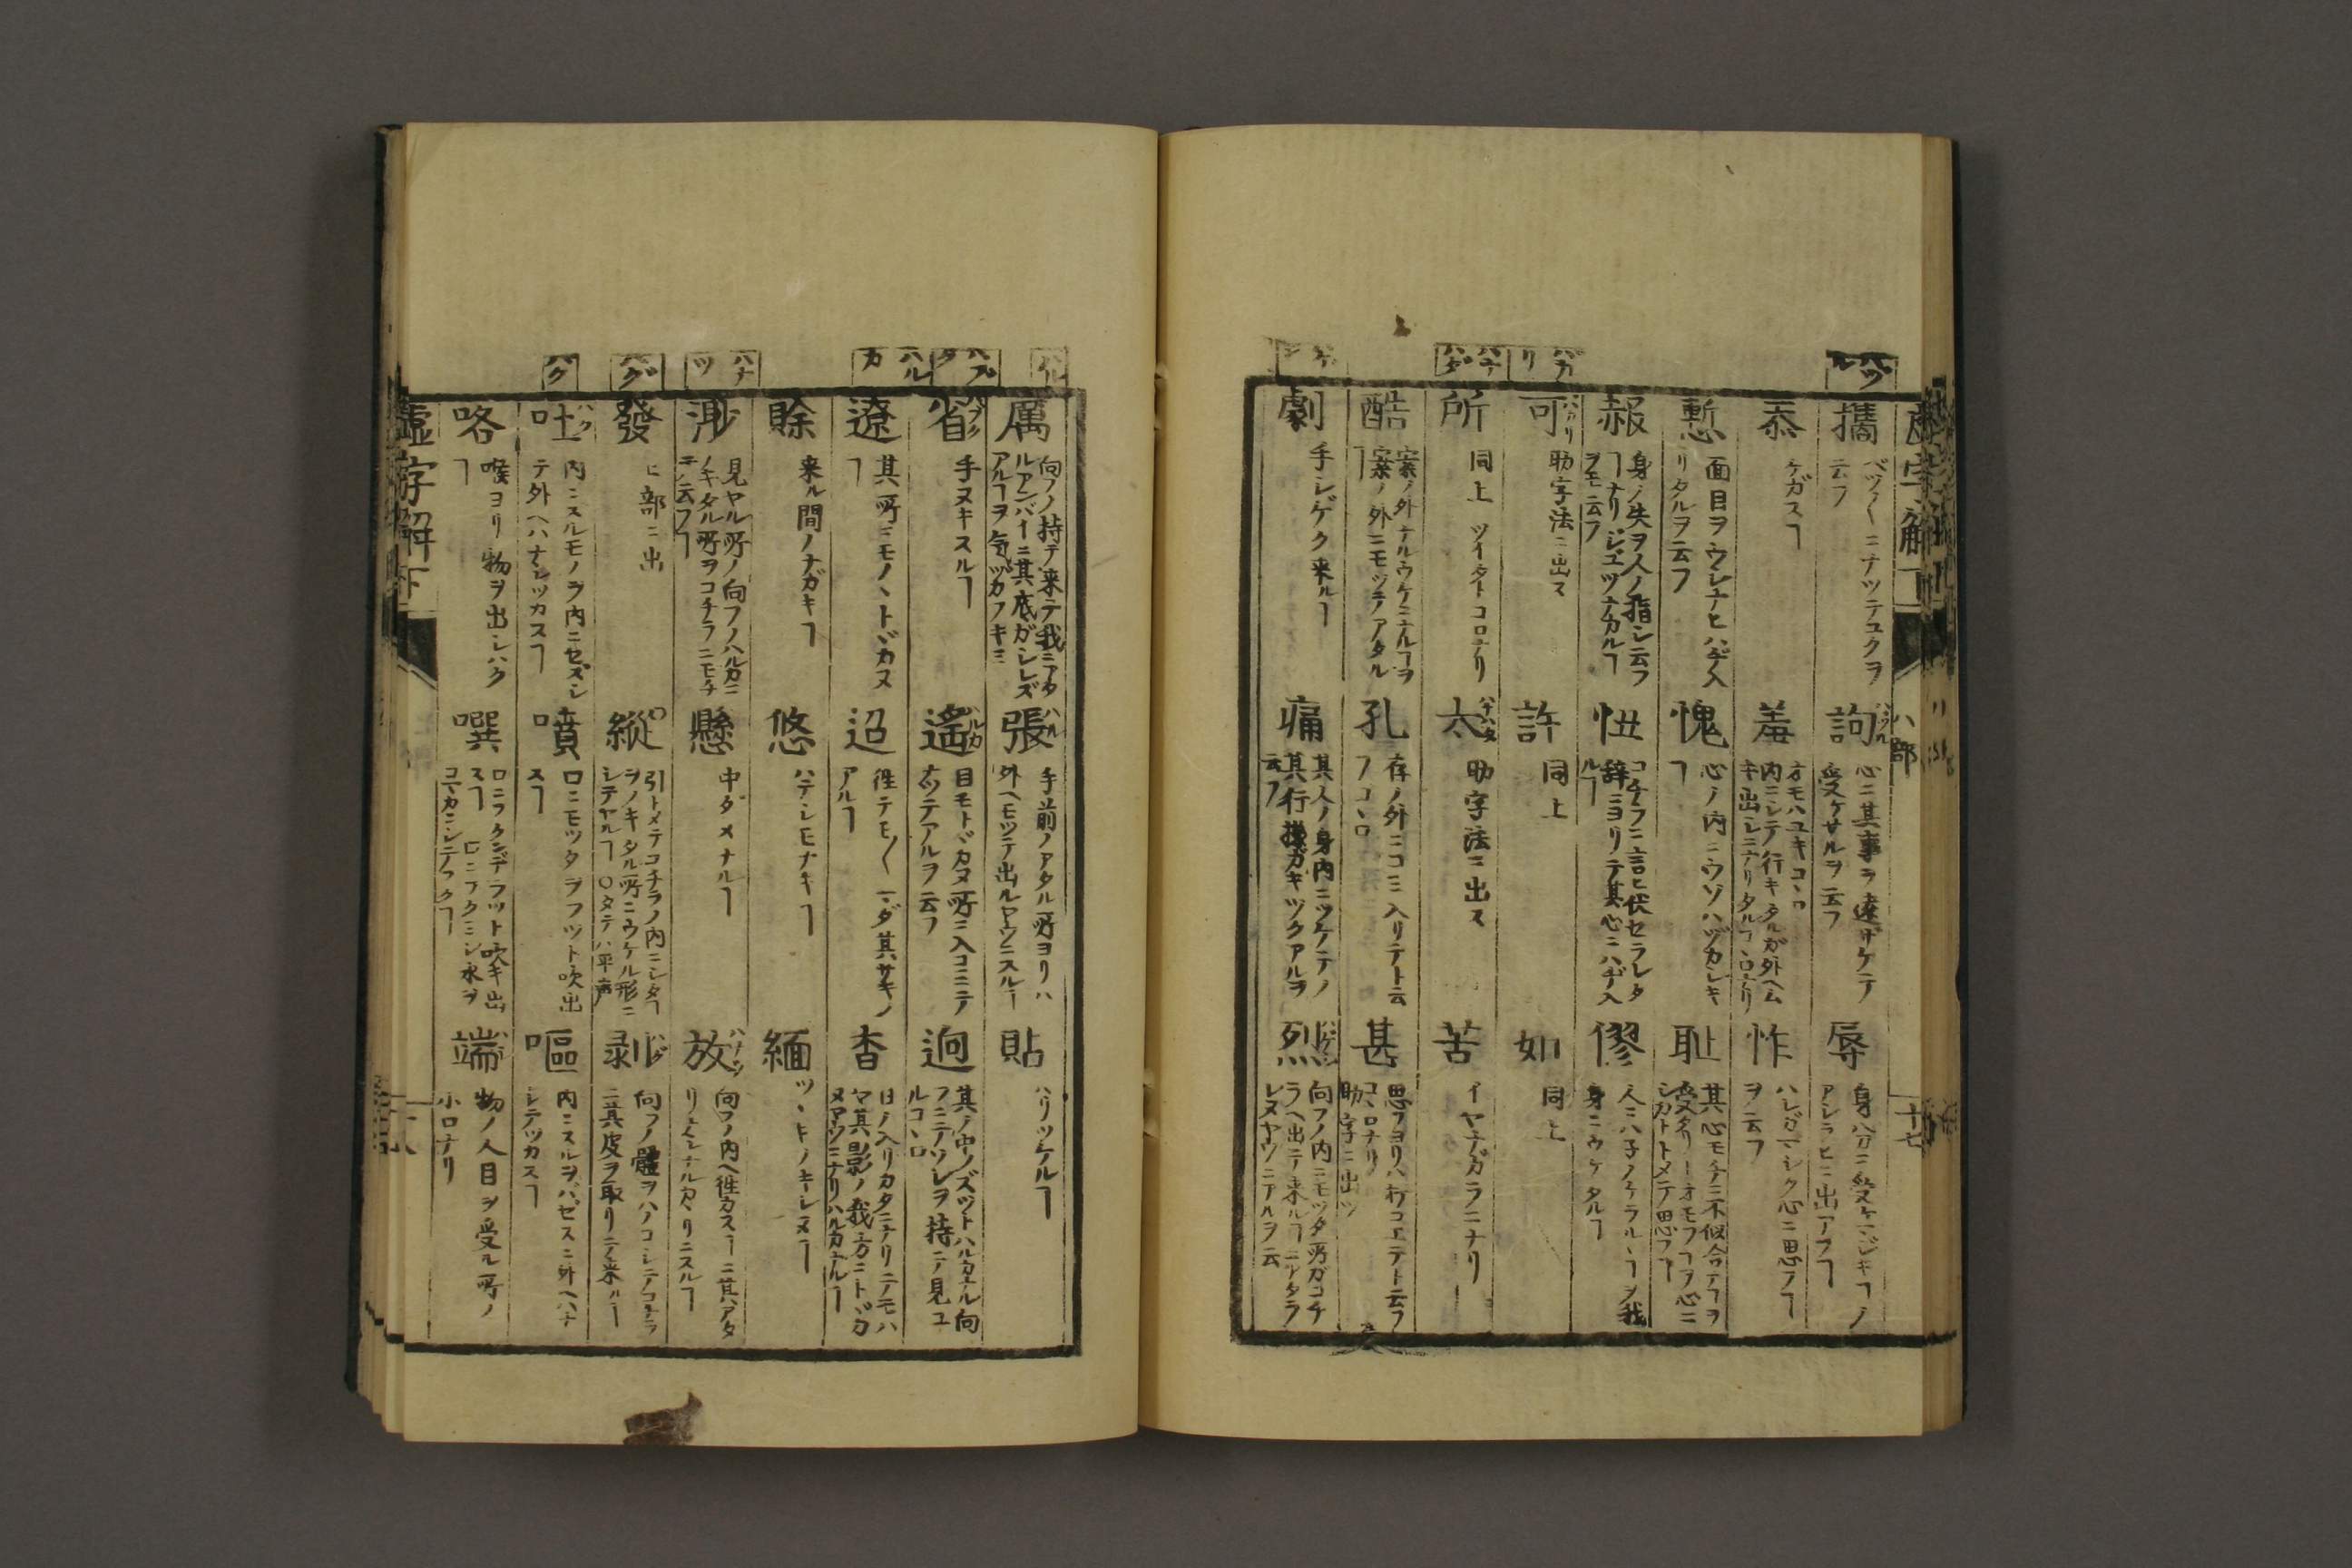 虚字解下
ハ部
十七
攜
ベツ〱ニナツテユクヲ
云フ
訽
心ニ其事ヲ遠ザケテ
受ケサルヲ云フ
辱
身分ニ受ケマジキフノ
アシラヒニ出アフヿ
忝
ケガスヿ
羞
方モハユキコヽロ
内ニシテ行キタルガ外ヘム
キ出シニナリタルコヽロナリ
怍
ハレガマシク心ニ思フヿ
ヲ云フ
慙
面目ヲウシナヒハヂ入
リタルヲ云フ
愧
心ノ内ニウソハヅカシキ
ヿ
耻
其心モチニ不似合テフヲ
受タリトオモフヿヲ心ニ
シカトトメテ思フヿ
赧
身ノ失ヲ人ノ指シ云フ
ヿナリ
ヲモ云フ
忸
コチラニ言ヒ伏セラレタ
辞ニヨリテ其心ニハヂ入
ルヿ
僇
身ニウケタルヿ
可
助字法ニ出ス
許
同上
如
同上
所
同上 ツイタトコロナリ
太
助字法ニ出ス
苦
イヤナガラニナリ
酷
案ノ外ナルウケニナルヿヲ
案ノ外ニモツテアタル
ヿ
孔
存ノ外ニコミ入リテト云
フコヽロ
甚
思フヨリハ行コエテト云フ
コヽロナリ
助字ニ出ヅ
劇
手シゲク来ルヿ
痛
其人ノ身内ニツケテノ
其行摸ガキツクアルヲ
云フ
烈
向フノ内ニモツタ所ガコチ
ラヘ出テ来ルヿニアタラ
レヌヤウニアルヲ云
厲
向フノ持テ来テ我ニアタ
ルアンバイニ其底ガシレズ
アルヿヲ気ヅカフキミ
張
手前ノアタル所ヨリハ
外ヘモツテ出ルヤウニスルヿ
貼
ハリツケルヿ
省
手ヌキスルヿ
遙
目モトヾカヌ所ニ入コミテ
ナツテアルヲ云フ
迥
其ノ中ノズツトハルカナル向
フニテソレヲ持ニテ見ユ
ルコヽロ
遼
其所ニモノヽトヾカヌ
ヿ
迢
徃テモ〱マダ其サキノ
アルヿ
杳
日ノ入リカタニナリニテモハ
ヤ其影ノ我方ニトヾカ
ヌヤウニナリハルカナルヿ
賖
来ル間ノナガキヿ
悠
ハテシモナキヿ
緬
ツヾキノキレヌヿ
渺
見ヤル所ノ向フノハルカニ
ノキタル所ヲコチラニモチ
テ云フヿ
懸
中ダメナルヿ
放
向フノ内ヘ徃カスヿニ其アタ
發
ヒ部ニ出
縱
引トメテコチラノ内ニシタヿ
ヲノキタル所ニウケル形ニ
シテヤルヿ 〇タテハ平声
剥
向フノ體ヲハノコシテコチラ
ニ其皮ヲ取リニ来ルヿ
吐
内ニスルモノヲ内ニセズシ
テ外ヘハナシツカスヿ
噴
口ニモツタヲフツト吹出
スヿ
嘔
内ニスルヲバゼスニ外ヘハナ
シテツカスヿ
咯
喉ヨリ物ヲ出シハク
ヿ
噀
口ニフクンデラツト吹キ出
スヿ 口ニフクミシ水ヲ
コマカニシテフクヿ
端
物ノ人目ヲ受ル所ノ
小口ナリ
虚字解下